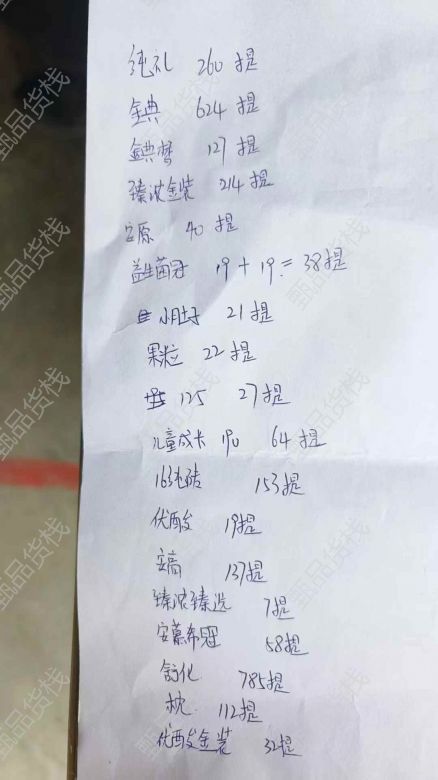 纯礼 260提
金典 624提
金典梦 127提
臻浓金装 214提
安原 40提
益生菌冠 19+19=38提
小肚子 21提
果粒 22提
125 27提
儿童成长 190 64提
16纯砖 153提
优酸 19提
安高 137提
臻浓臻选 7提
安慕希冠 58提
舒化 785提
枕 112提
优酸金装 32提
甄品货栈